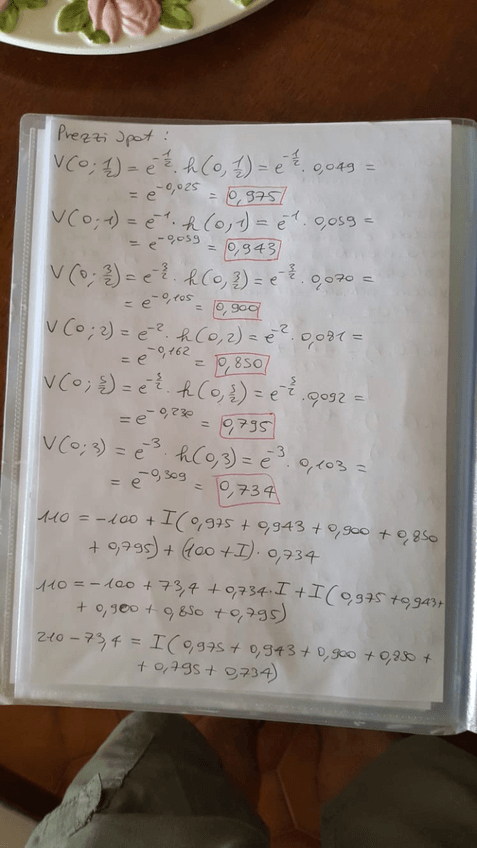 Prezzi spot :
V(0; 1/2) = e^{-1/2 · h(0, 1/2)} = e^{-1/2 · 0,049} =
= e^{-0,025} = 0,975
V(0; 1) = e^{-1 · h(0, 1)} = e^{-1 · 0,059} =
= e^{-0,059} = 0,943
V(0; 3/2) = e^{-3/2 · h(0, 3/2)} = e^{-3/2 · 0,070} =
= e^{-0,105} = 0,900
V(0; 2) = e^{-2 · h(0, 2)} = e^{-2 · 0,081} =
= e^{-0,162} = 0,850
V(0; 5/2) = e^{-5/2 · h(0, 5/2)} = e^{-5/2 · 0,092} =
= e^{-0,230} = 0,795
V(0; 3) = e^{-3 · h(0, 3)} = e^{-3 · 0,103} =
= e^{-0,309} = 0,734
110 = -100 + I(0,975 + 0,943 + 0,900 + 0,850
+ 0,795) + (100 + I) · 0,734
110 = -100 + 73,4 + 0,734 · I + I(0,975 + 0,943 +
+ 0,900 + 0,850 + 0,795)
210 - 73,4 = I(0,975 + 0,943 + 0,900 + 0,850 +
+ 0,795 + 0,734)